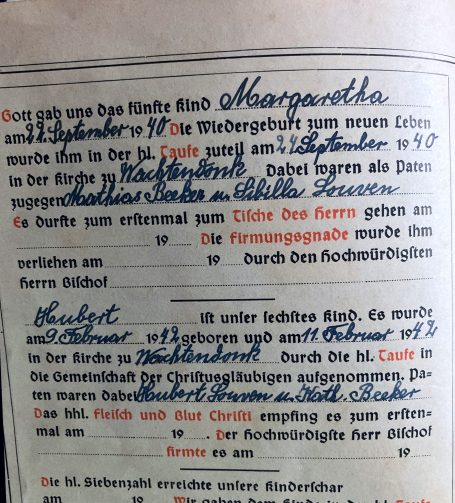 Gott gab uns das fünfte Kind Margaretha
am 22. September 1940 Die Wiedergeburt zum neuen Leben
wurde ihm in der hl. Taufe zuteil am 24 September 1940
in der Kirche zu Wachtendonk Dabei waren als Paten
zugegen Mathias Beeker u. Sibilla Louven
Es durfte zum erstenmal zum Tische des Herrn gehen am
19 Die Firmungsgnade wurde ihm
verliehen am 19 durch den Hochwürdigsten
Herrn Bischof
Hubert ist unser sechstes Kind. Es wurde
am 9. Februar 1942 geboren und am 11. Februar 1942
in der Kirche zu Wachtendonk durch die hl. Taufe in
die Gemeinschaft der Christusgläubigen aufgenommen. Pa-
ten waren dabei Hubert Louven u. Kath. Beeker
Das hhl. Fleisch und Blut Christi empfing es zum ersten-
mal am 19 . Der Hochwürdigste Herr Bischof
firmte es am 19
Die hl. Siebenzahl erreichte unsere Kinderschar
am 19 Wir gaben dem Kind in der hl. Taufe